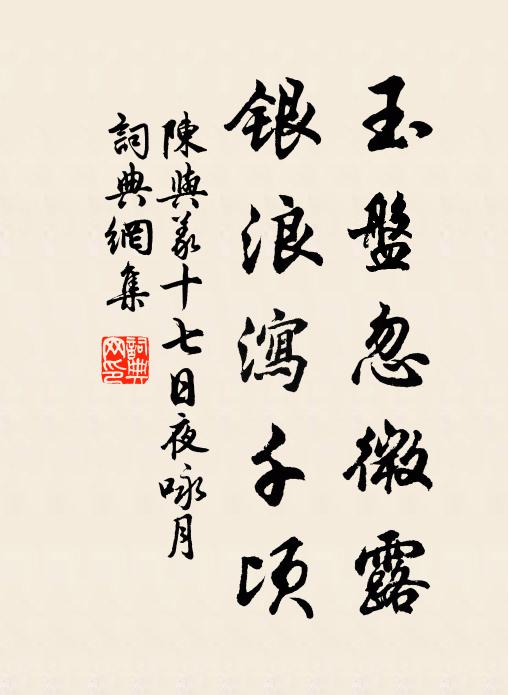 玉盤忽微露
銀浪瀉千頃
陳與義十七日夜咏月
詞典網集
詞典網印